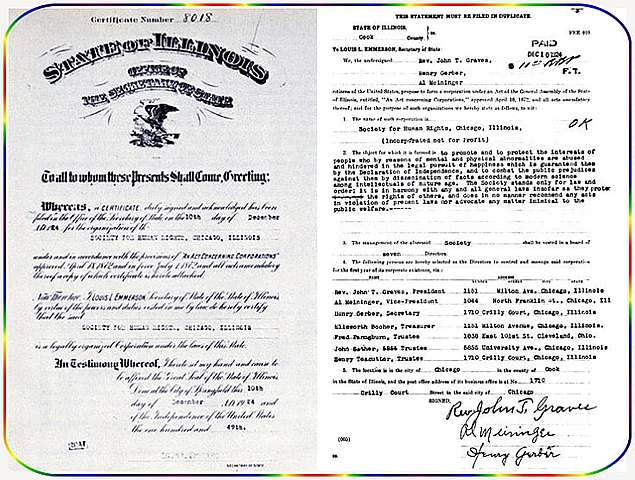 Certificate Number 8018
STATE OF ILLINOIS
OFFICE OF
THE SECRETARY OF STATE
To all to whom these Presents Shall Come, Greeting:
Whereas, a CERTIFICATE, duly signed and acknowledged has been
filed in the Office of the Secretary of State on the 10th day of December
A.D. 1924 for the organization of the
SOCIETY FOR HUMAN RIGHTS, CHICAGO, ILLINOIS
under and in accordance with the provisions of "AN ACT CONCERNING CORPORATIONS"
approved April 18, 1872, and in force July 1, 1872, and all acts amendatory
thereof, a copy of which certificate is hereto attached.
Now Therefore, I LOUIS L EMMERSON, Secretary of State of the State of Illinois
by virtue of the powers and duties vested in me by law, do hereby certify
that the said
SOCIETY FOR HUMAN RIGHTS, CHICAGO, ILLINOIS
is a legally organized Corporation under the laws of this State.
In Testimony Whereof, I hereto set my hand and cause to
be affixed the Great Seal of the State of Illinois
Done at the City of Springfield this 10th
day of December A.D. 1924 and
of the Independence of the United States
the one hundred and 49th.
SEAL
THIS STATEMENT MUST BE FILED IN DUPLICATE.
STATE OF ILLINOIS,
Cook County
FEE $10
PAID
DEC 10 1924
F.T.
To LOUIS L. EMMERSON, Secretary of State:
We, the undersigned Rev. John T. Graves,
Henry Gerber,
Al Meininger
citizens of the United States, propose to form a corporation under an Act of the General Assembly of the State
of Illinois, entitled, "An Act concerning Corporations," approved April 18, 1872, and all acts amendatory
thereof; and for the purpose of such organization we hereby state as follows, to wit:
1. The name of such corporation is
Society for Human Rights, Chicago, Illinois,
OK
(Incorporated not for Profit)
2. The object for which it is formed is to promote and to protect the interests of
people who by reasons of mental and physical abnormalities are abused
and hindered in the legal pursuit of happiness which is guaranteed them
by the Declaration of Independence, and to combat the public prejudices
against them by dissemination of facts according to modern science
among intellectuals of mature age. The Society stands only for law and
order; it is in harmony with any and all general laws insofar as they protect
the rights of others, and does in no manner recommend any acts
in violation of present laws nor advocate any matter inimical to the
public welfare.-----
3. The management of the aforesaid Society shall be vested in a board of
seven Directors.
4. The following persons are hereby selected as the Directors to control and manage said corporation
for the first year of its corporate existence, viz:
Rev. John T. Graves, President 1151 Milton Ave, Chicago, Illinois
Al Meininger, Vice-President 1044 North Franklin St., Chicago, Ill
Henry Gerber, Secretary 1710 Crilly Court, Chicago, Illinois
Ellsworth Booher, Treasurer 1151 Milton Avenue, Chicago, Illinois
Fred Panngburn, Trustee 1838 East 101st St. Cleveland, Ohio.
John Sather, Trustee 5855 University Ave., Chicago, Illinois
Henry Teacutter, Trustee 1710 Crilly Court, Chicago, Illinois
5. The location is in city of Chicago in the county of Cook
in the State of Illinois, and the post office address of its business office is at No. 1710
Crilly Court Street in the said city of Chicago
SIGNED,
Rev. John T. Graves
Al Meininger
Henry Gerber